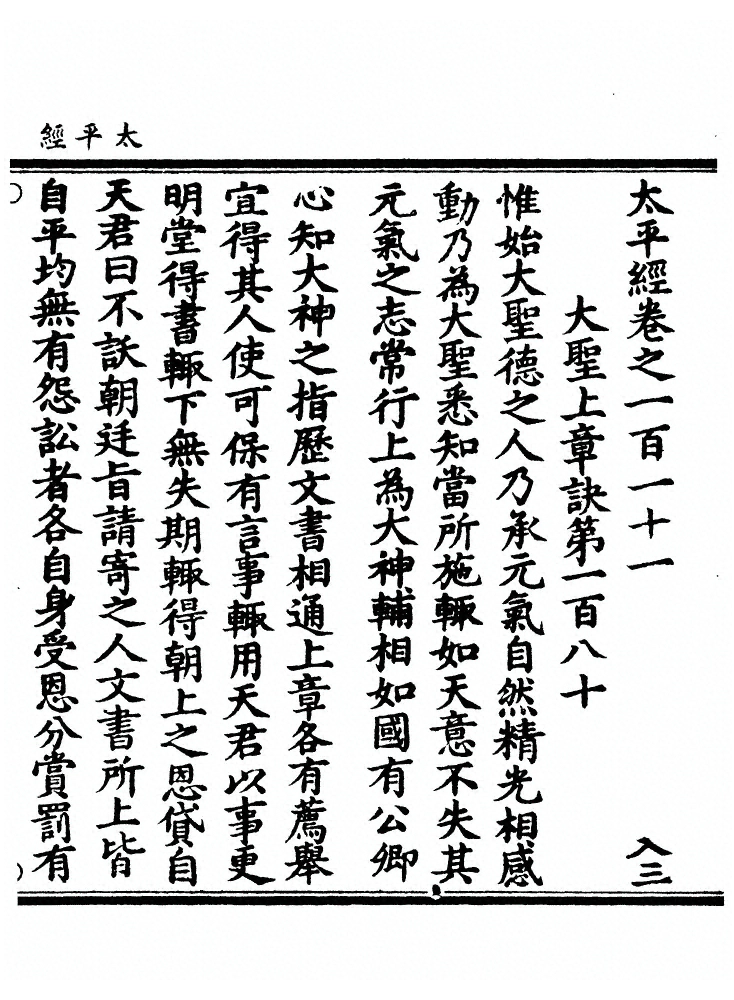 太平經
太平經卷之一百一十一
入三
大聖上章訣第一百八十
惟始大聖德之人乃承元氣自然精光相感
動乃為大聖悉知當所施輙如天意不失其
元氣之志常行上為大神輔相如國有公卿
心知大神之指歷文書相通上章各有薦舉
宜得其人使可保有言事輙用天君以事更
明堂得書輙下無失期輙得朝上之恩貸自
天君曰不訞朝廷旨請寄之人文書所上皆
自平均無有怨訟者各自身受恩分賞罰有